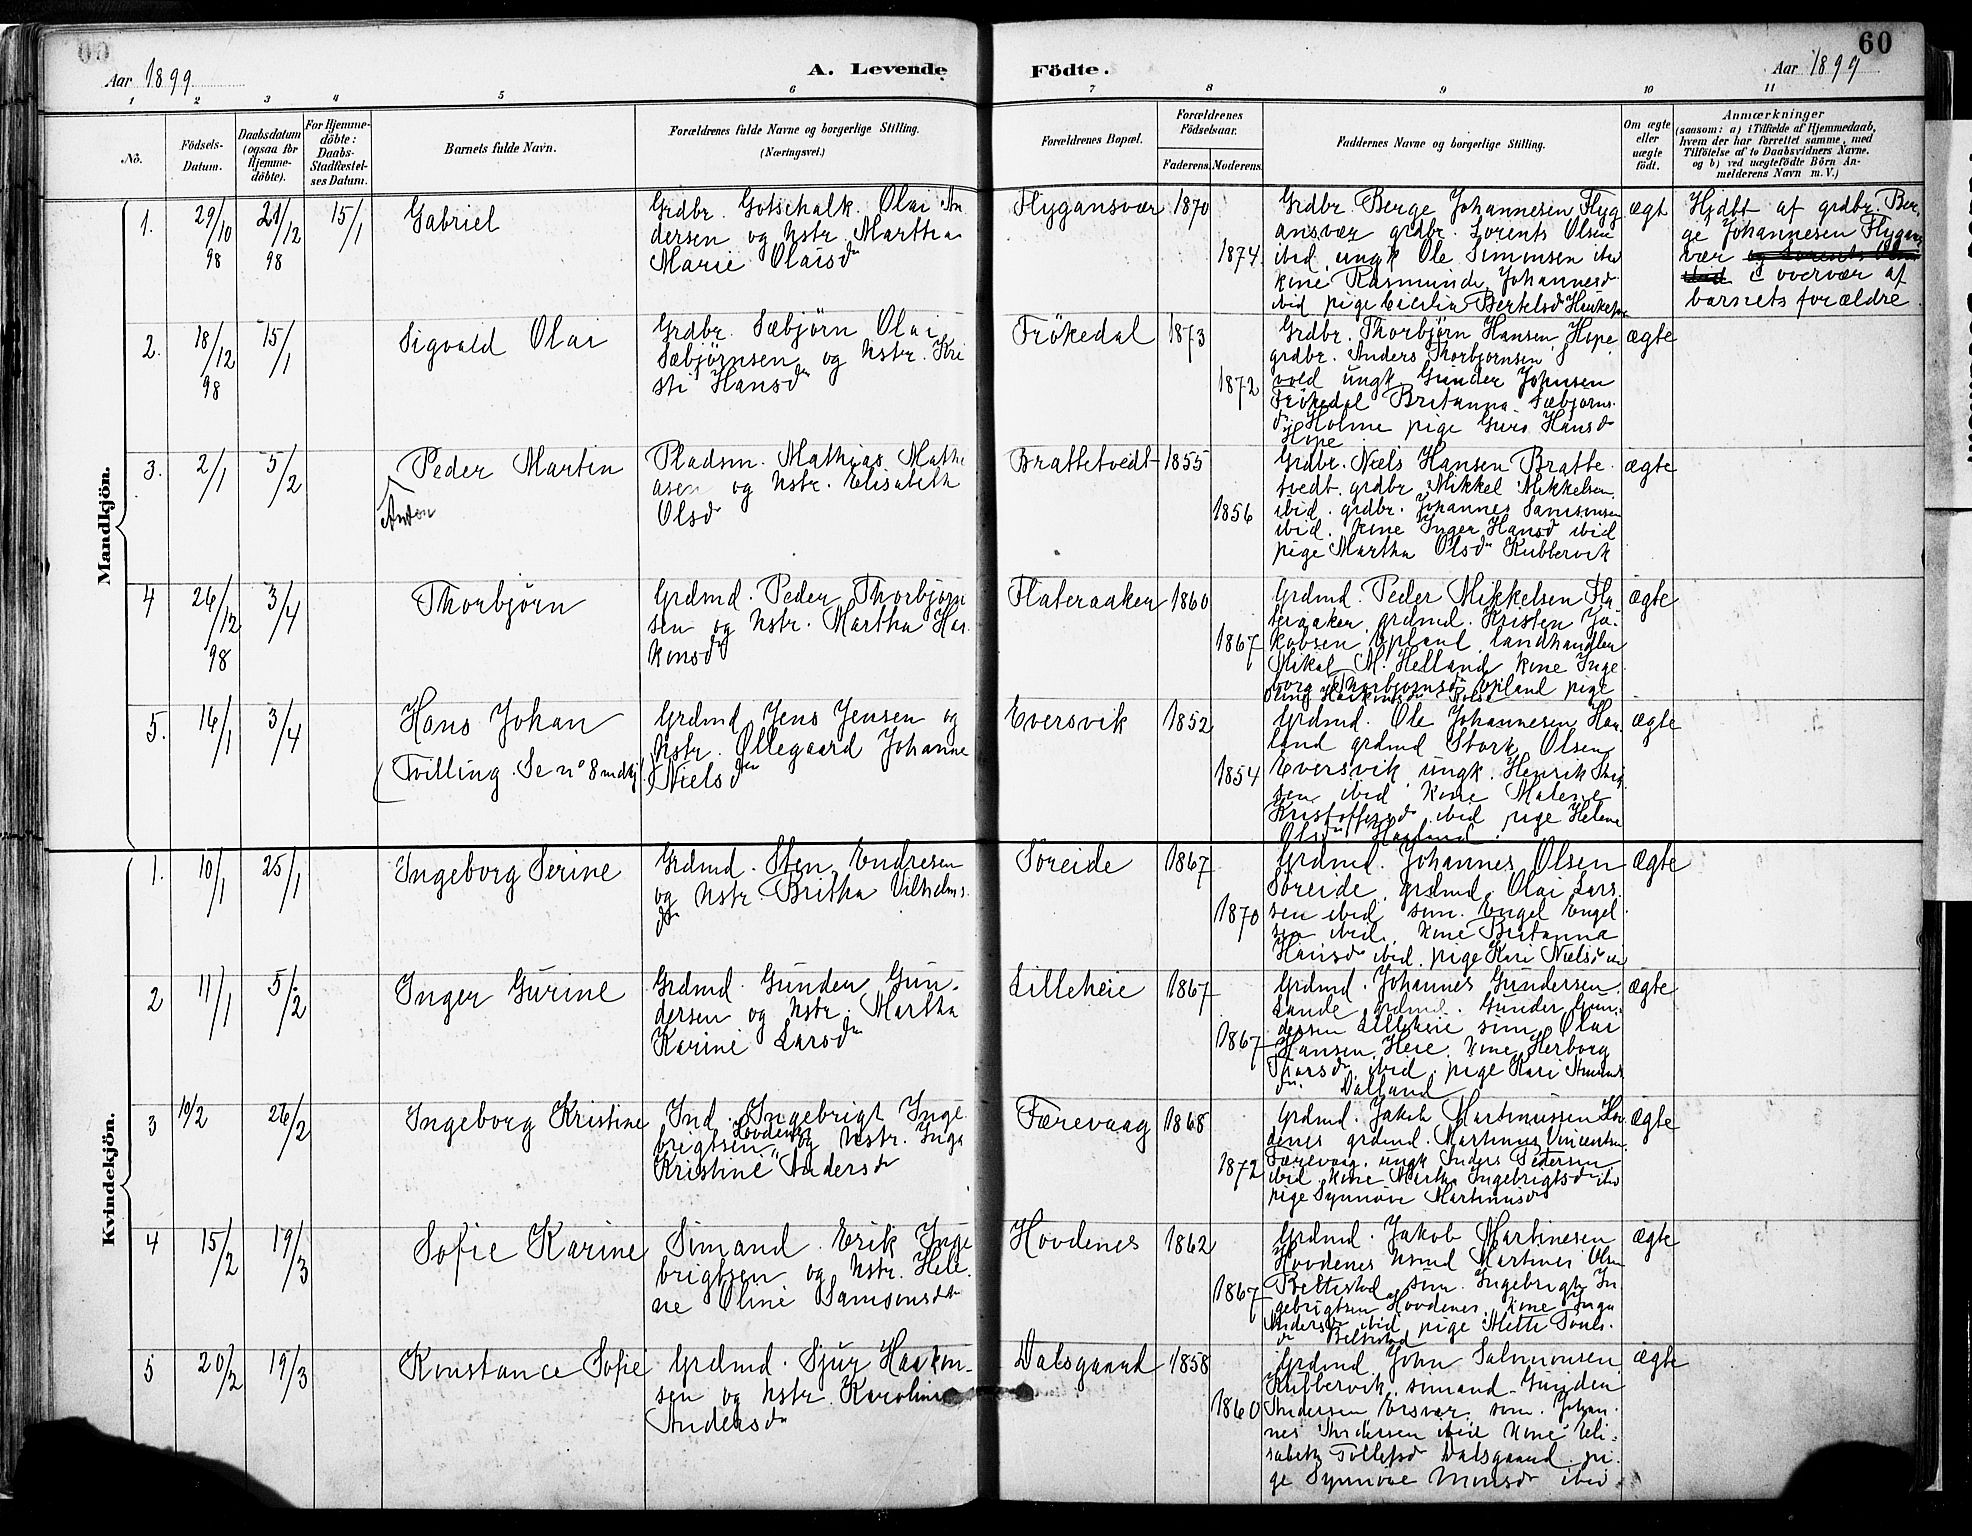 60
Aar 1899
A. Levende Födte.
Aar 1899
1 2 3 4 5 6 7 8 9 10 11
No.
Födsels-Datum.
Daabsdatum (ogsaa for Hjemme-döbte).
For Hjemme-döbte: Daabs-Stadfæstel-ses Datum.
Barnets fulde Navn.
Forældrenes fulde Navne og borgerlige Stilling.
(Næringsvei.)
Forældrenes Bopæl.
Forældrenes Födselsaar.
Faderens. Moderens.
Faddernes Navne og borgerlige Stilling.
Om ægte eller uægte födt.
Anmærkninger
(saasom: a) i Tilfælde af Hjemmedaab,
hvem der har forrettet samme, med
Tilföielse af to Daabsvidners Navne,
og b) ved uægtefödte Börn An-
melderens Navn m. V.)
Mandkjön.
1. 29/10 98
21/12 98
15/1
Gabriel
Grdbr. Gotschalk Olai An
dersen og Hstr. Martha
Marie Olaisdr
Flygansvær
1870
1874
Grdbr. Berge Johannesen Flyg
ansvær grdbr. Lorents Olsen
ibid, ungk Ole Simonsen ibid
kone Rasmunda Johannesd
ibid pige Cicilia Bertelsd
ægt
Hjdbt af grdbr. Ber
ge Johannesen Flygans
vær og Lorents Olsen
ibid i overvær af
barnets forældre
2. 18/12 98
15/1
Sigvald Olai
Grdbr. Sæbjørn Olai
Sæbjørnsen og Hstr. Kri
sti Hansdr
Frökedal
1873
1872
Grdbr. Thorbjørn Hansen Hope
grdbr. Anders Thorbjørnsen
vold ungk Gunder Johnsen
Frökedal Britanna Sæbjørns
dr Holme pige Guro Hansd
Hope
ægte
3. 2/1
5/2
Peder Martin
Anton
Pladsm. Mathias Mathi
asen og Hstr. Elisabeth
Olsd
Brattetvedt
1855
1856
Grdbr. Niels Hansen Bratte
tvedt. grdbr. Mikkel Mikkelsen
ibid. grdbr. Johannes Samsonsen
ibid. kone Inger Hansd ibid
pige Martha Olsdr Kubbervik
ægte
4 26/12 98
3/4
Thorbjørn
Grdmd. Peder Thorbjørn
sen og Hstr. Martha Haa
konsdr
Flateraaker
1860
1867
Grdmd. Peder Mikkelsen Fla
teraaker, grdmd. Kristen Ja-
kobsen Opland, landhandler
Mikal M. Helland, kone Inge
borg Thorbjørnsd Opland pige
ægte
5. 14/1
3/4
Hans Johan
(Tvilling. Se no 8 mdkj)
Grdmd Jens Jensen og
Hstr. Ollegaard Johanne
Nielsdr
Eversvik
1852
1854
Grdmd. Ole Johannesen Hau
land grdmd Stork Olsen
Eversvik ungk. Henrik
sen ibid kone Malene
Kristoffersd ibid pige Helene
Olsdr Hauland
ægte
Kvindekjön.
1. 10/1
25/1
Ingeborg Serine
Grdmd. Sten Endresen
og Hstr. Britha Vilhelms
dr
Söreide
1867
1870
Grdmd. Johannes Olsen
Söreide, grdmd. Olai Lars
sen ibid söm. Engel Engel
sen ibid, kone Britanna
Hansd ibid, pige Kari Nielsd
ægte
2 11/1
5/2
Inger Gurine
Grdmd. Gunder Gun-
dersen og Hstr. Martha
Karine Larsdr
Lilleheie
1867
1867
Grdmd. Johannes Gundersen
Lande grdmd. Gunder Gun-
dersen Lilleheie söm. Olai
Hansen Heie. kone Herborg
ibid. pige Kari
dr. Dalland
ægte
3 10/2
26/2
Ingeborg Kristine
Ind. Ingebrigt Inge
brigtsen Hovdenes og Hstr. Inga
Kristine Andersdr
Færevaag
1868
1872
Grdmd. Jakob Martinussen Hov
denes grdmd. Martinus Vincentsen
Færevaag. ungk Anders Pedersen
ibid kone Martha Ingebrigtsd ibid
pige Synnöve Martinusd
ægte
4 15/2
19/3
Sofie Karine
Sömand. Erik Inge
brigtsen og Hstr. Hele
ne Oline Samsonsdr
Hovdenes
1862
1867
Grdmd. Jakob Martinesen
Hovdenes Hsmd Martinus Olsen
Beltestad söm. Ingebrigt In
gebrigtsen Hovdenes, kone Inga
Andersd ibid pige Mette
dr Beltestad
ægte
5 20/2
19/3
Konstance Sofie
Grdmd. Sjur Haakon-
sen og Hstr. Karoline
Andersdr
Dalsgaard
1858
1860
Grdmd John Salomonsen
Kubbervik, sömand Gunder
Andersen söm. Johan
nes Andersen ibid kone Eli-
sabeth Tollefsd Dalsgaard pi
ge Synnöve Monsd ibid
ægte